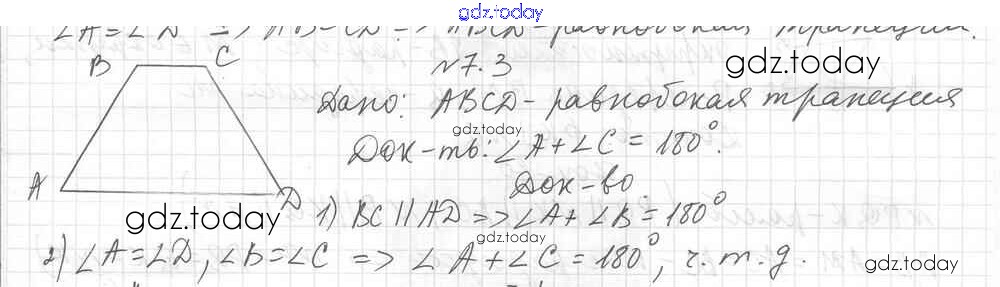 gdz.today
∠A=∠D => AB=CD => ABCD-равнобокая трапеция.
B C №7.3
gdz.today
Дано: ABCD-равнобокая трапеция
gdz.today
Док-ть: ∠A+∠C=180°.
A D Док-во.
gdz.today 1) BC||AD=>∠A+∠B=180°
gdz.today
2) ∠A=∠D, ∠B=∠C => ∠A+∠C=180°, ч.т.д.
gdz.today